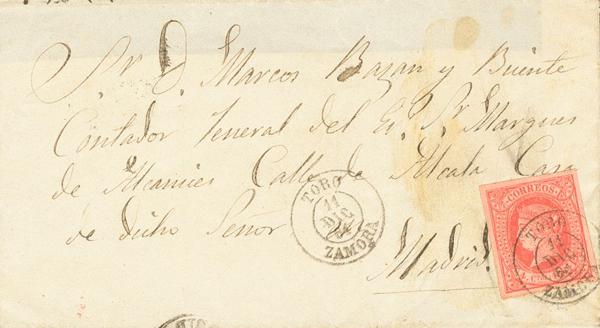 Sr. D. Marcos Bazan y Buente
Contador General del E. Sr. Marques
de Alcañices Calle de Alcala Casa
de dicho Señor
Madrid.
TORO
11
DIC
64
ZAMORA
CORREOS
TORO
11
DIC
64
ZAMORA